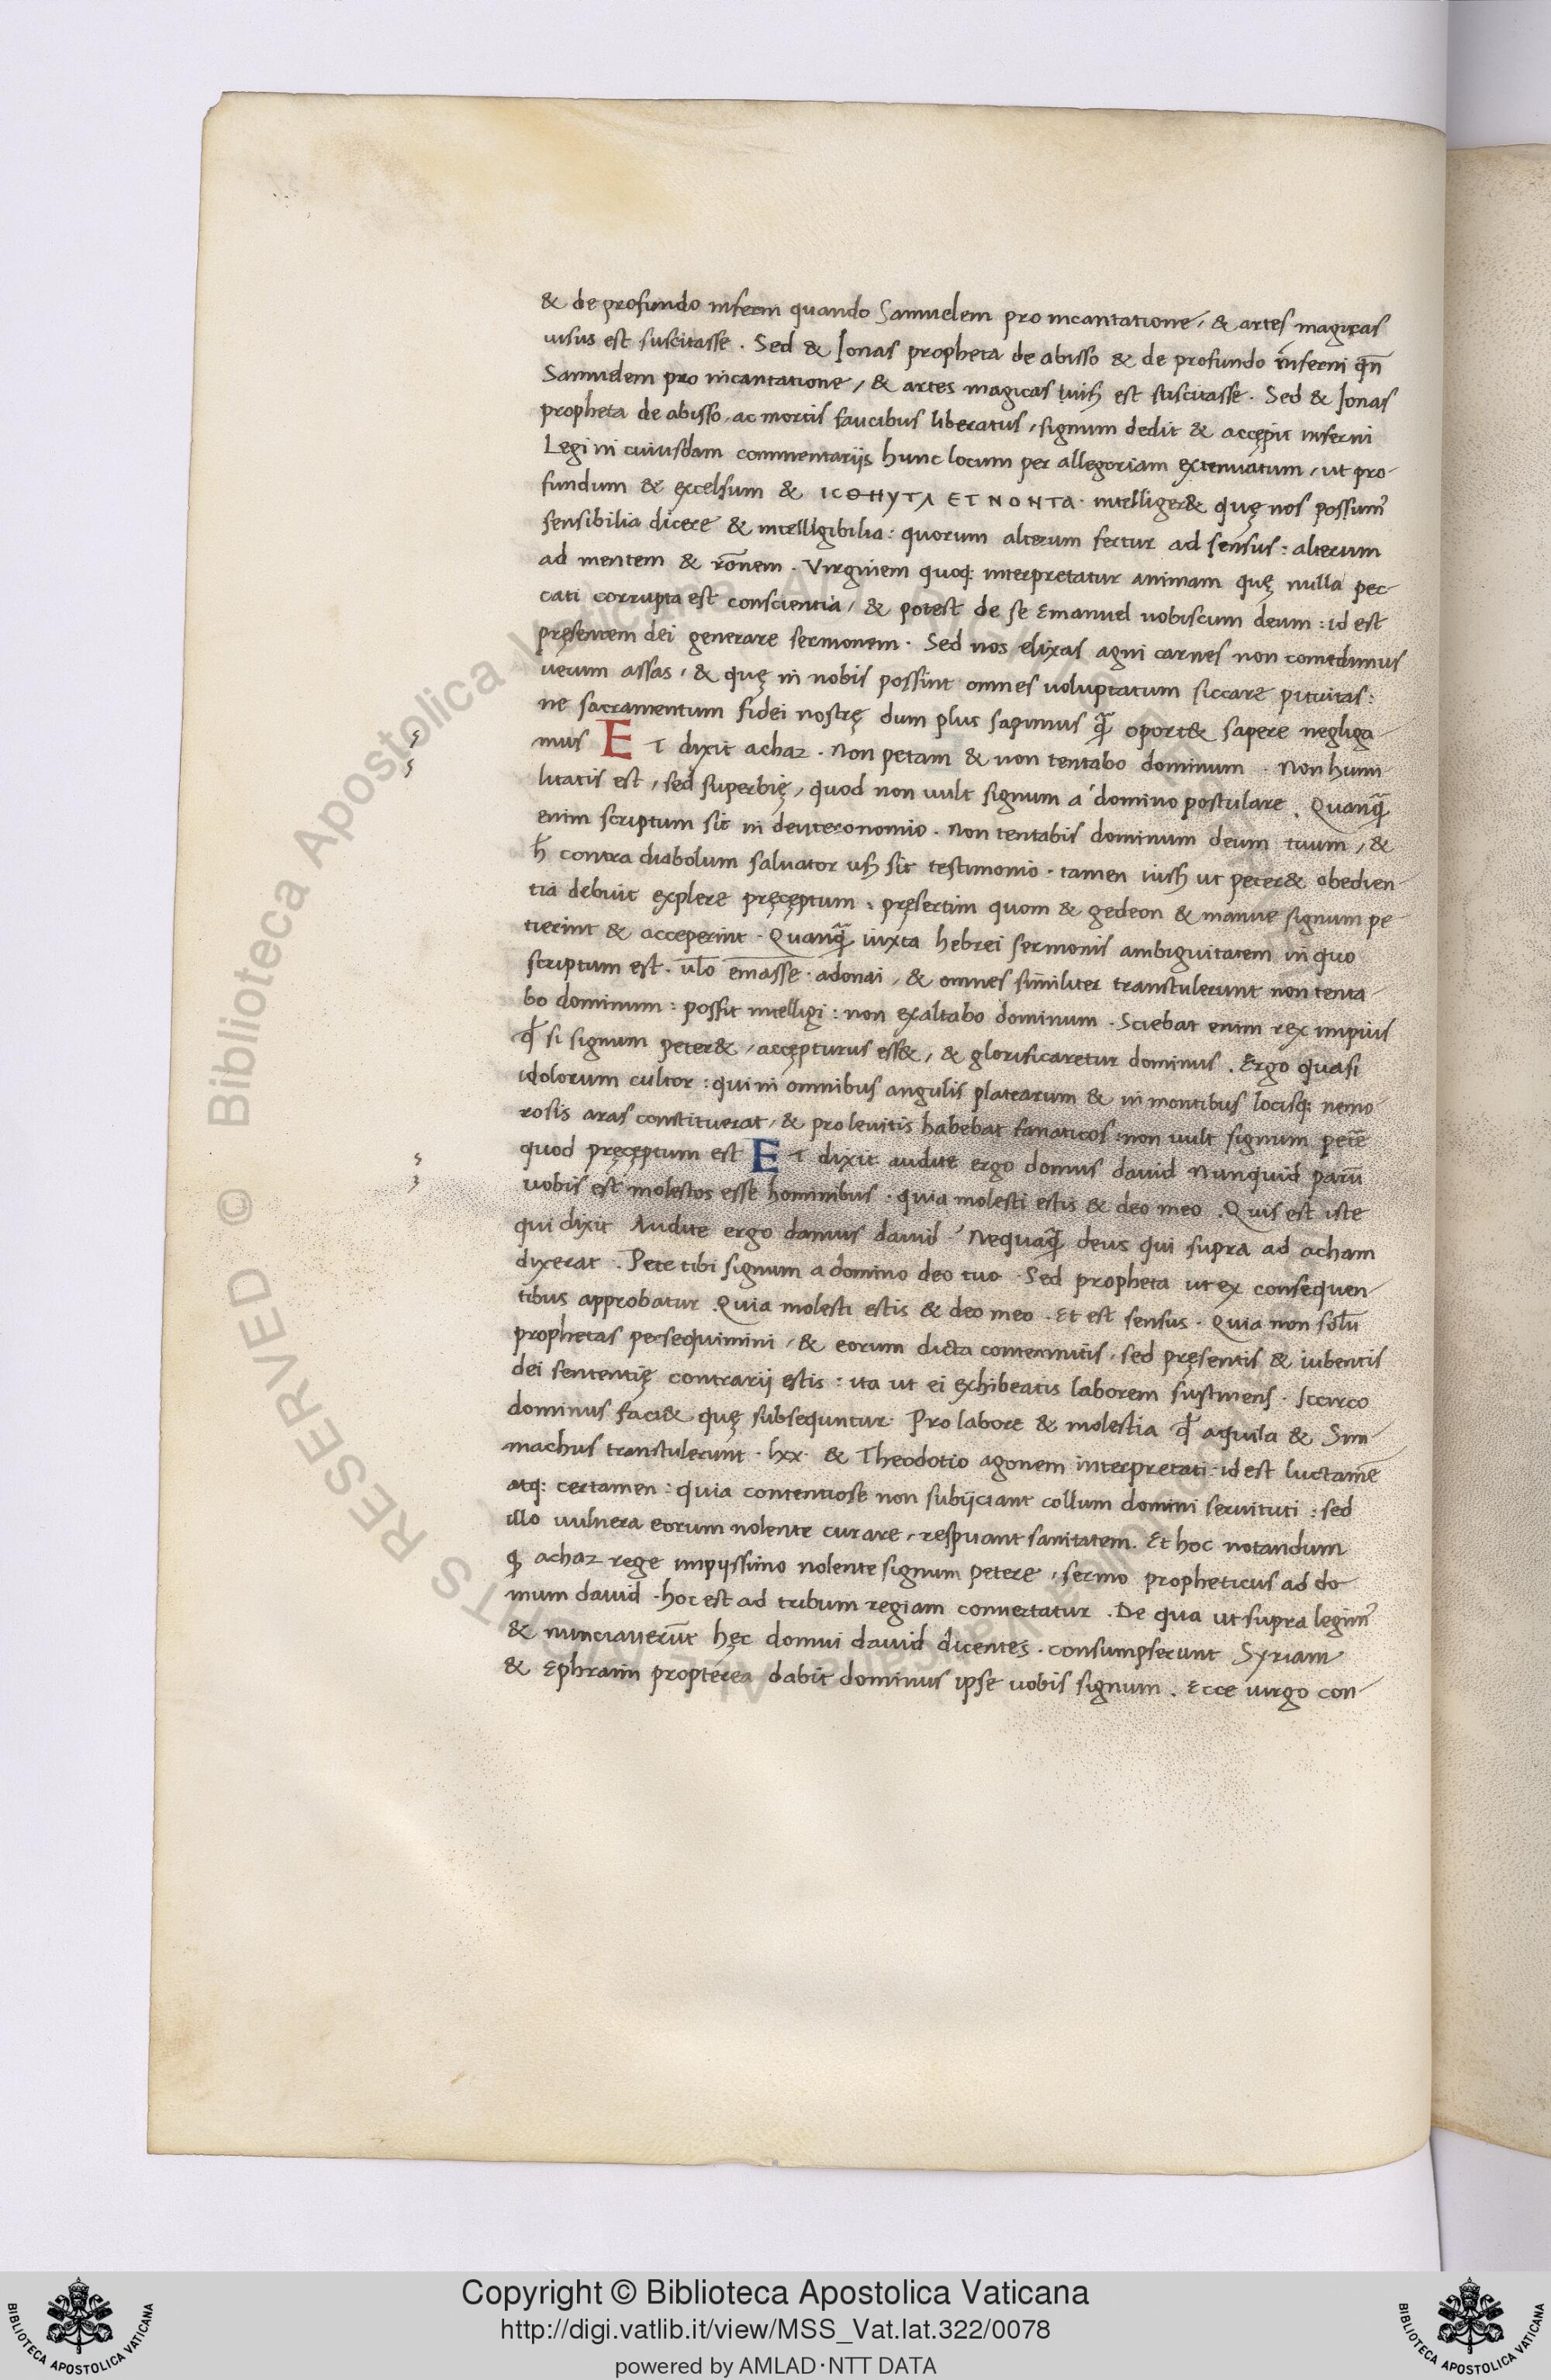 & de profundo inferni quando Samuelem pro incantatione, & artes magicas
uisus est suscitasse. Sed & Ionas propheta de abisso & de profundo inferni qñ
Samuelem pro incantatione, & artes magicas est suscitasse. Sed & Ionas
propheta de abisso, ac mortis faucibus liberatus, signum dedit & accępit inferni
Legi in cuiusdam commentarijs hunc locum per allegoriam extenuatum, ut pro-
fundum & excelsum & ΙCΘΗΥΤΛ ΕΤ ΝΟΝΤΑ. intelliger& quę nos possum᾽
sensibilia dicere & intelllgibilia: quorum alterum fertur ad sensus: alterum
ad mentem & rōnem. Virginem quoq: interpretatur animam quę nulla pec-
cati corrupta est conscientia, & potest de se Emanuel nobiscum deum: id est
pręsentem dei generare sermonem. Sed nos elixas agni carnes non comedimus
uerum assas, & quę in nobis possint omnes uoluptatum siccare pituitas:
ne sacramentum fidei nostrę dum plus sapimus q̃ oport& sapere negliga-
mus ET dixit achaz. Non petam & non tentabo dominum. Non humi-
litatis est, sed superbię, quod non uult signum a domino postulare. Quanq̃
enim scriptum sit in deuteronomio. Non tentabis dominum deum tuum, &
contra diabolum saluator sit testimonio. tamen ut peter& obedien-
tia debuit explere pręcęptum. pręsertim quom & gedeon & manue signum pe-
tierint & acceperint. Quanq̃ iuxta hebrei sermonis ambiguitatem in quo
scriptum est. ulo emasse. adonai, & omnes similiter transtulerunt non tenta-
bo dominum: possit intelligi: non exaltabo dominum. Sciebat enim rex impius
qd̃ si signum peter&, accępturus ess&, & glorificaretur dominus. Ergo quasi
idolorum cultor: qui in omnibus angulis platearum & in montibus locisq: nemo-
rosis aras constituerat, & pro leuitis habebat fanaticos: non uult signum petē
quod pręcęptum est ET dixit audite ergo domus dauid Nunquid parū
uobis est molestos esse hominibus. quia molesti estis & deo meo. Quis est iste
qui dixit Audite ergo damus dauid Nequaq̃ deus qui supra ad acham
dixerat. Pete tibi signum a domino deo tuo. Sed propheta ut ex consequen-
tibus approbatur. Quia molesti estis & deo meo. Et est sensus. Quia non solū
prophetas persequimini, & eorum dicta contemnitis, sed pręsentis & iubentis
dei sententię contrarij estis: ita ut ei exhibeatis laborem sustinens. Iccirco
dominus faci& quę subsequntur. Pro labore & molestia qd̃ aquila & Sim-
machus transtulerunt. lxx. & Theodotio agonem interpretati. id est luctamē
atq: certamen: quia contentiose non subijciant collum domini seruituti: sed
illo uulnera eorum nolente curare, respuant sanitatem. Et hoc notandum
ꝙ achaz rege impijssimo nolente signum petere, sermo propheticus ad do-
mum dauid. hoc est ad tribum regiam conuertatur. De qua ut supra legim᾽
& nunciauerūt hęc domui dauid dicentes. consumpserunt Syriam
& Ephraim propterea dabit dominus ipse uobis signum. Ecce uirgo con-
Biblioteca Apostolica Vaticana
RESERVED ©
Copyright © Biblioteca Apostolica Vaticana
http://digi.vatlib.it/view/MSS_Vat.lat.322/0078
powered by AMLAD·NTT DATA
BIBLIOTECA APOSTOLICA VATICANA
BIBLIOTECA APOSTOLICA VATICANA